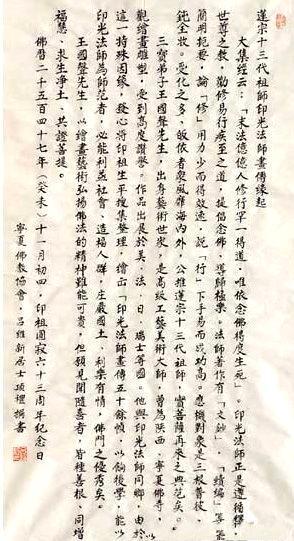 蓮宗十三代祖師印光法師畫傳緣起
大集經云：「末法億億人修行罕一得道，唯依念佛得度生死」。印光法師正是遵循釋
世尊之教，勸修易行疾至之道，提倡念佛，導歸極樂。法師著作有「文鈔」、「續編」等，能
簡明扼要，論「修」用力少而得效速，説「行」下手易而成功高。應機對象是三根普被，
鈍全收，受化之多，皈依者衆，風靡海內外，公推蓮宗十三代祖師，實菩薩再來之典范矣。
三寶弟子王國聲先生，出身藝術世家，是高級工藝美術大師，曾為陝西、寧夏佛寺，
觀繪畫雕塑，受到高度讚譽。作品出展於美、法、日、瑞士等國。他與印光法師同鄉，由於
這一特殊因緣，發心將印祖生平搜集整理，繪出「印光法師畫傳五十餘幀」，以餉後學，能以
印光法師為師范者，必能利益社會、造福人群，莊嚴國土，利樂有情，佛門之優秀矣。
王國聲先生，以繪畫藝術弘揚佛法的精神難能可貴，但願見聞隨喜者，皆種善根，同增
福慧，求生淨土，共證菩提。
佛曆二千五百四十七年（癸未）十一月初四，印祖圓寂六十三周年紀念日
寧夏佛教協會，呂維新居士頂禮撰書